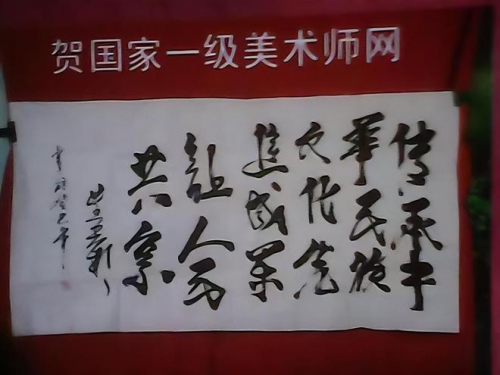 贺国家一级美术师网
传承中
华民族
文化先
进成果
让人民
共享